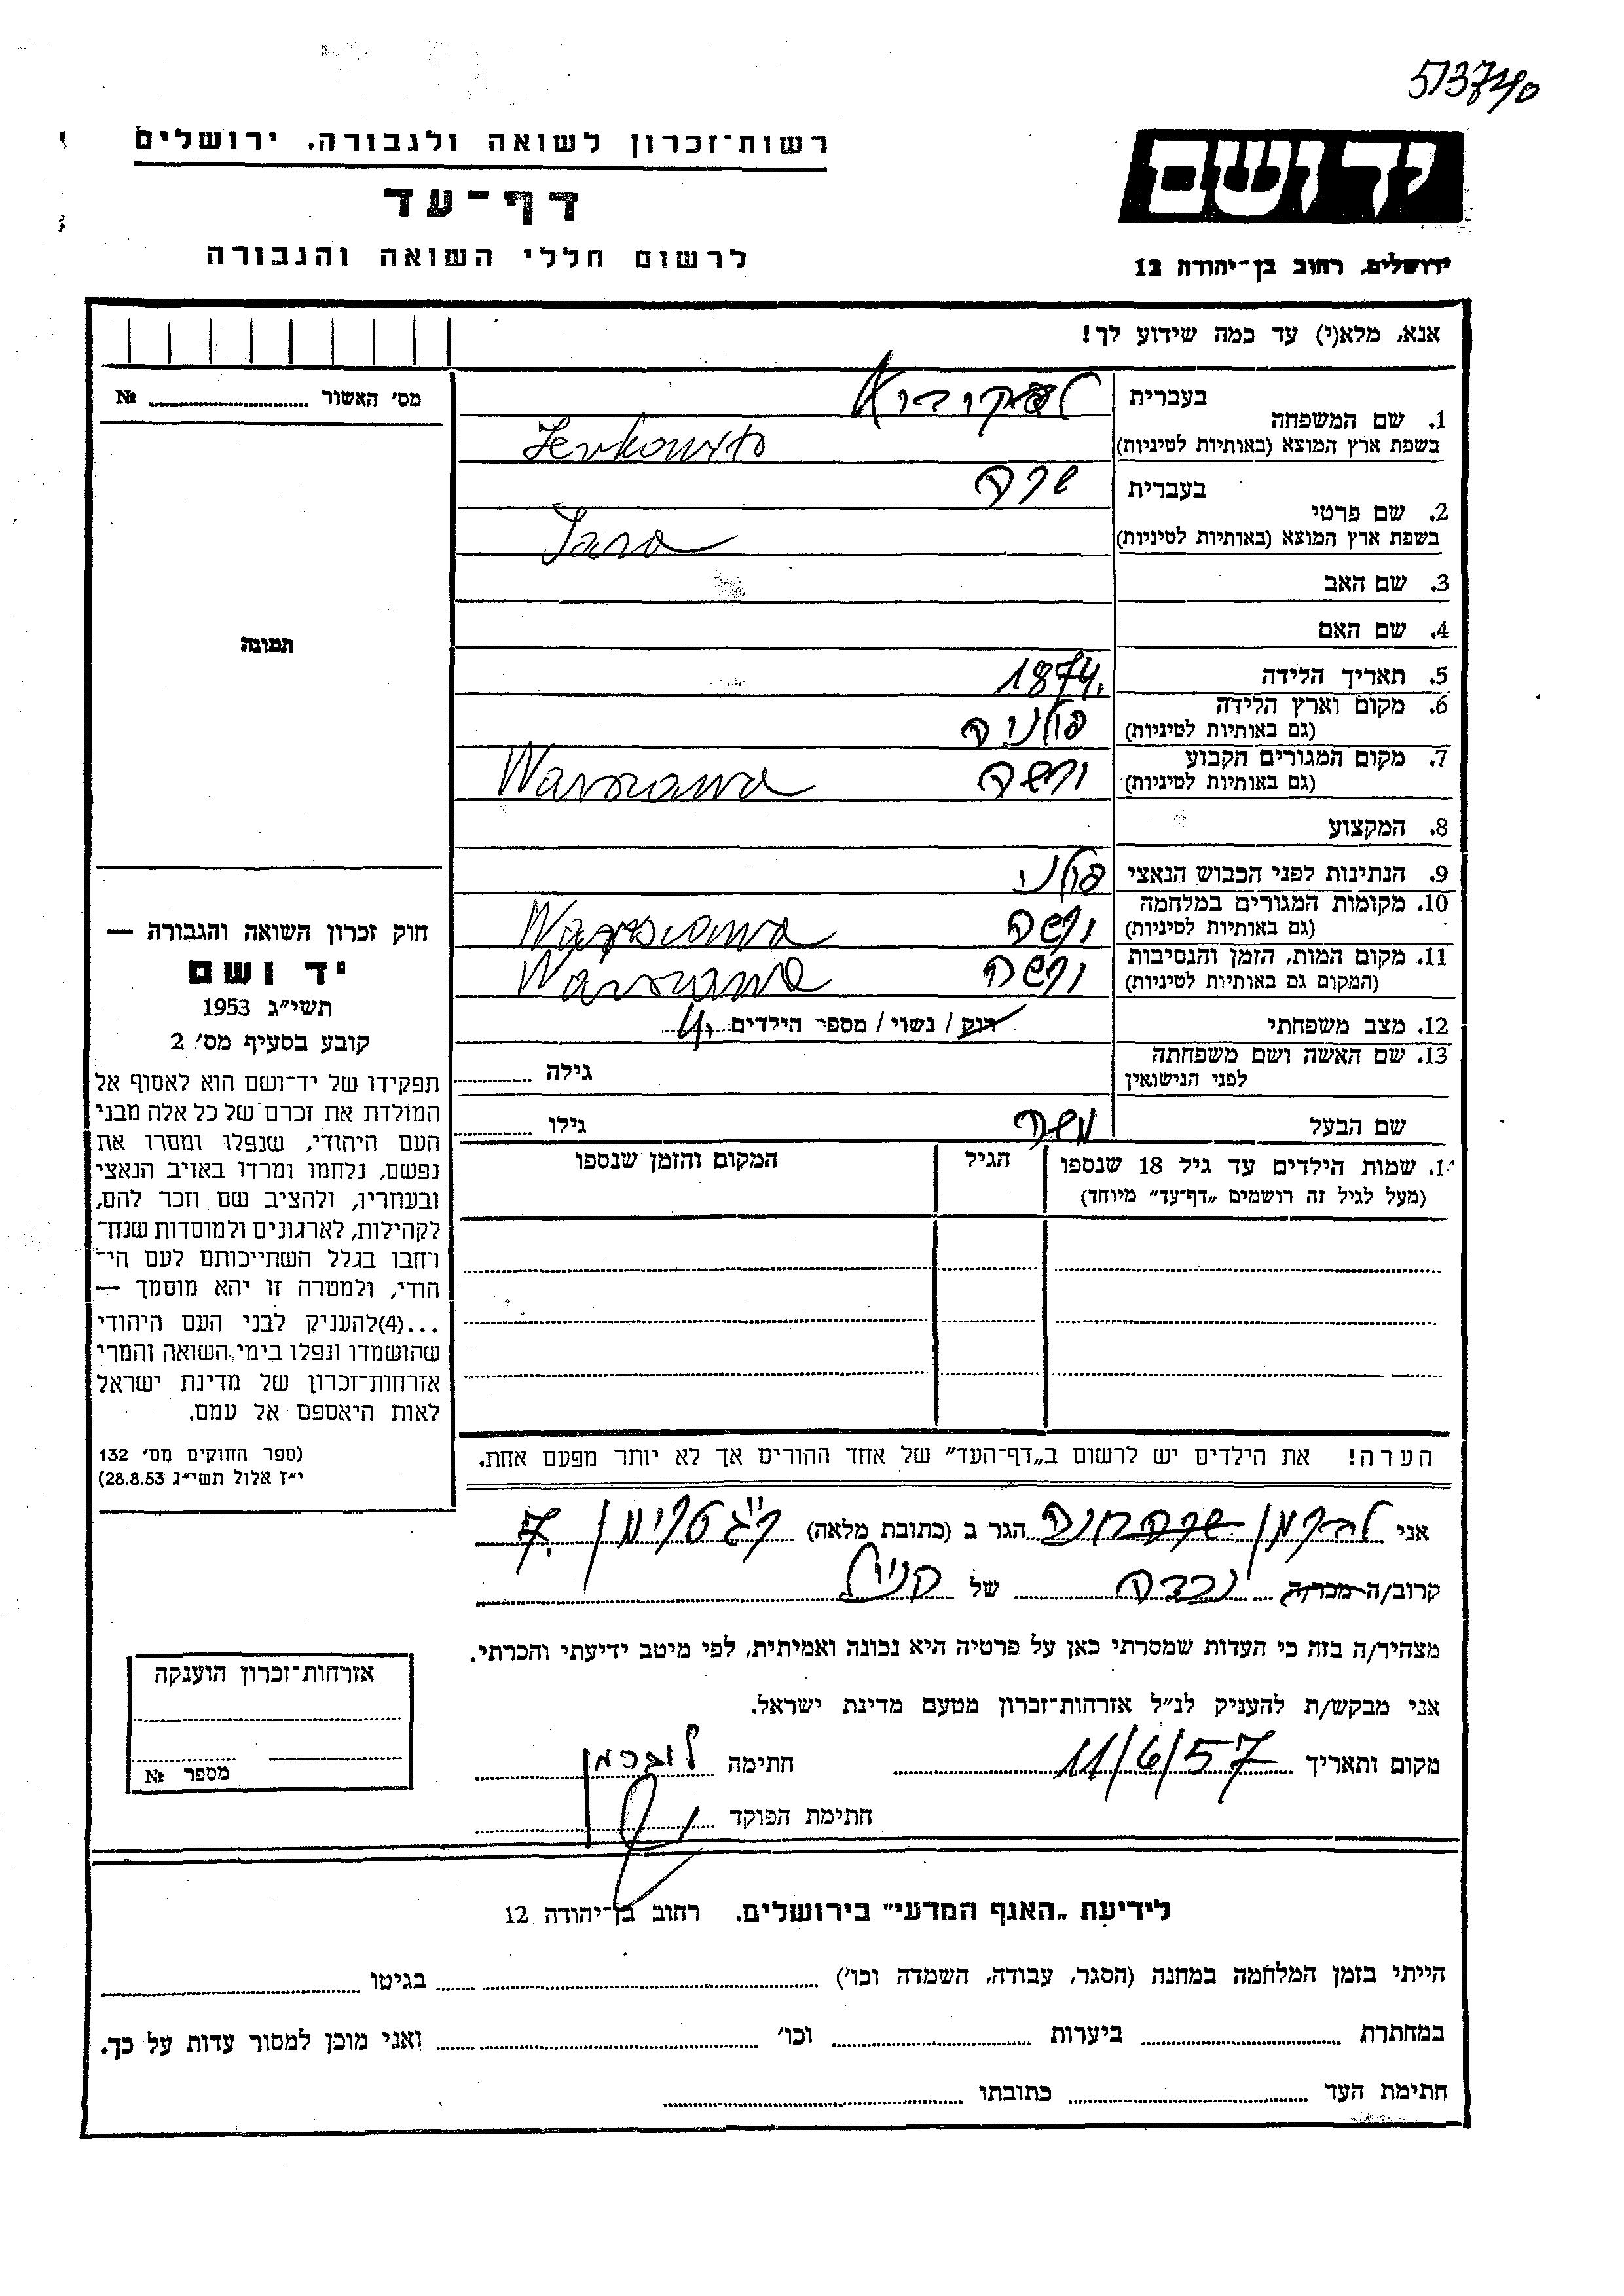 513740
רשות־זכרון לשואה ולגבורה, ירושלים
דף־עד
לרשום חללי השואה והגבורה
יד ושם
ירושלים, רחוב בן־יהודה 12
אנא, מלא(י) עד כמה שידוע לך!
מס׳ האשור № 
תמונה
חוק זכרון השואה והגבורה —
יד ושם
תשי״ג 1953
קובע בסעיף מס׳ 2
תפקידו של יד־ושם הוא לאסוף אל
המולדת את זכרם של כל אלה מבני
העם היהודי, שנפלו ומסרו את
נפשם, נלחמו ומרדו באויב הנאצי
ובעוזריו, ולהציב שם וזכר להם,
לקהילות, לארגונים ולמוסדות שנח־
רחבו בגלל השתייכותם לעם הי־
הודי, ולמטרה זו יהא מוסמך —
...(4)להעניק לבני העם היהודי
שהושמדו ונפלו בימי השואה והמרי
אזרחות־זכרון של מדינת ישראל
לאות היאספם אל עמם.
(ספר החוקים מס׳ 132
י״ז אלול תשי״ג 28.8.53)
1. שם המשפחה
בעברית
בשפת ארץ המוצא (באותיות לטיניות)
2. שם פרטי
בעברית שרה
בשפת ארץ המוצא (באותיות לטיניות) Sara
3. שם האב
4. שם האם
5. תאריך הלידה 1874.
6. מקום וארץ הלידה פולניה
(גם באותיות לטיניות)
7. מקום המגורים הקבוע ורשה Warszawa
(גם באותיות לטיניות)
8. המקצוע
9. הנתינות לפני הכבוש הנאצי פולני
10. מקומות המגורים במלחמה ורשה Warszawa
(גם באותיות לטיניות)
11. מקום המות, הזמן והנסיבות ורשה Warszawa
(המקום גם באותיות לטיניות)
12. מצב משפחתי רוק / נשוי / מספר הילדים 4
13. שם האשה ושם משפחתה
לפני הנישואין גילה
שם הבעל משה גילו
1. שמות הילדים עד גיל 18 שנספו הגיל המקום והזמן שנספו
(מעל לגיל זה רושמים „דף־עד״ מיוחד)
הערה! את הילדים יש לרשום ב„דף־העד״ של אחד ההורים אך לא יותר מפעם אחת.
אני הגר ב (כתובת מלאה) 7
קרוב/ה מכר/ה נכדה של
מצהיר/ה בזה כי העדות שמסרתי כאן על פרטיה היא נכונה ואמיתית, לפי מיטב ידיעתי והכרתי.
אני מבקש/ת להעניק לנ״ל אזרחות־זכרון מטעם מדינת ישראל.
מקום ותאריך 11/6/57 חתימה
חתימת הפוקד
אזרחות־זכרון הוענקה
מספר №
לידיעת „האגף המדעי״ בירושלים. רחוב בן־יהודה 12
הייתי בזמן המלחמה במחנה (הסגר, עבודה, השמדה וכו׳) בגיטו
במחתרת ביערות וכו׳ ואני מוכן למסור עדות על כך.
חתימת העד כתובתו